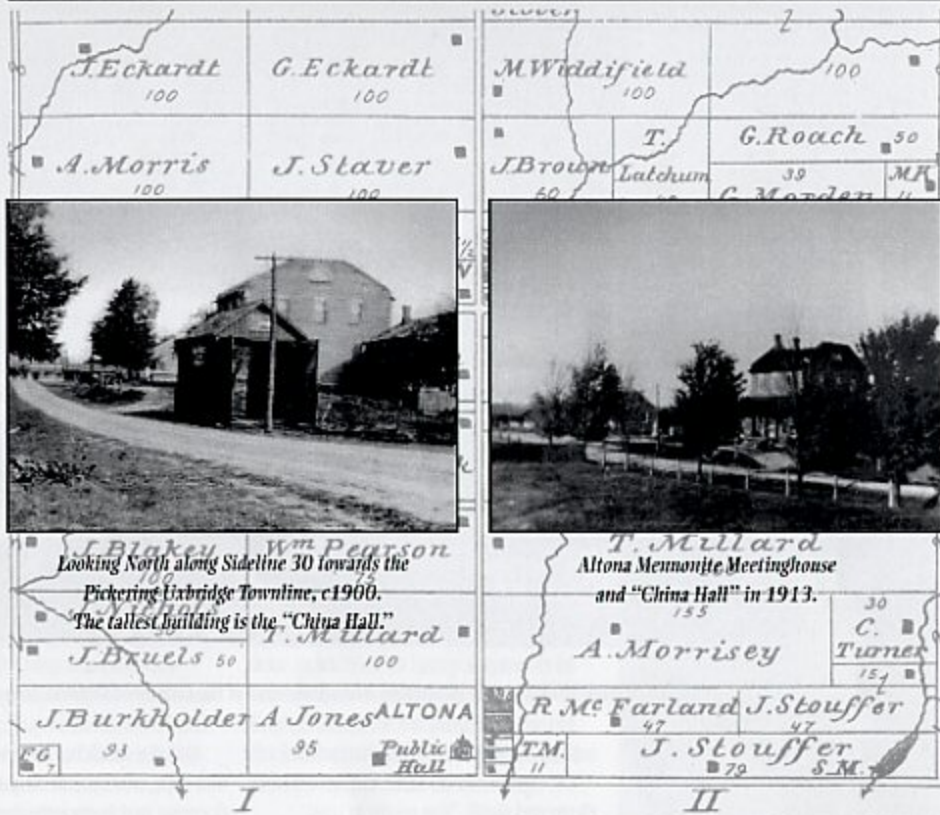 J. Eckardt
100
G. Eckardt
100
A. Morris
100
J. Staver
100
M. Widdifield
100
2
100
J. Brown
60
T.
Latchum
G. Roach 50
39
G. Morden
½
V
J. Blakey
100
Wm Pearson
75
Looking North along Sideline 30 towards the
Pickering Uxbridge Townline, c1900.
The tallest building is the "China Hall."
T. Millard
100
J. Bruels 50
J. Burkholder
93
A Jones
95
ALTONA
Public
Hall
F G
7
I
T. Millard
Altona Mennonite Meetinghouse
and "China Hall" in 1913.
155
A. Morrisey
30
C.
Turner
15½
R Mc Farland
47
J. Stouffer
47
T.M.
11
J. Stouffer
79
S.M.
II